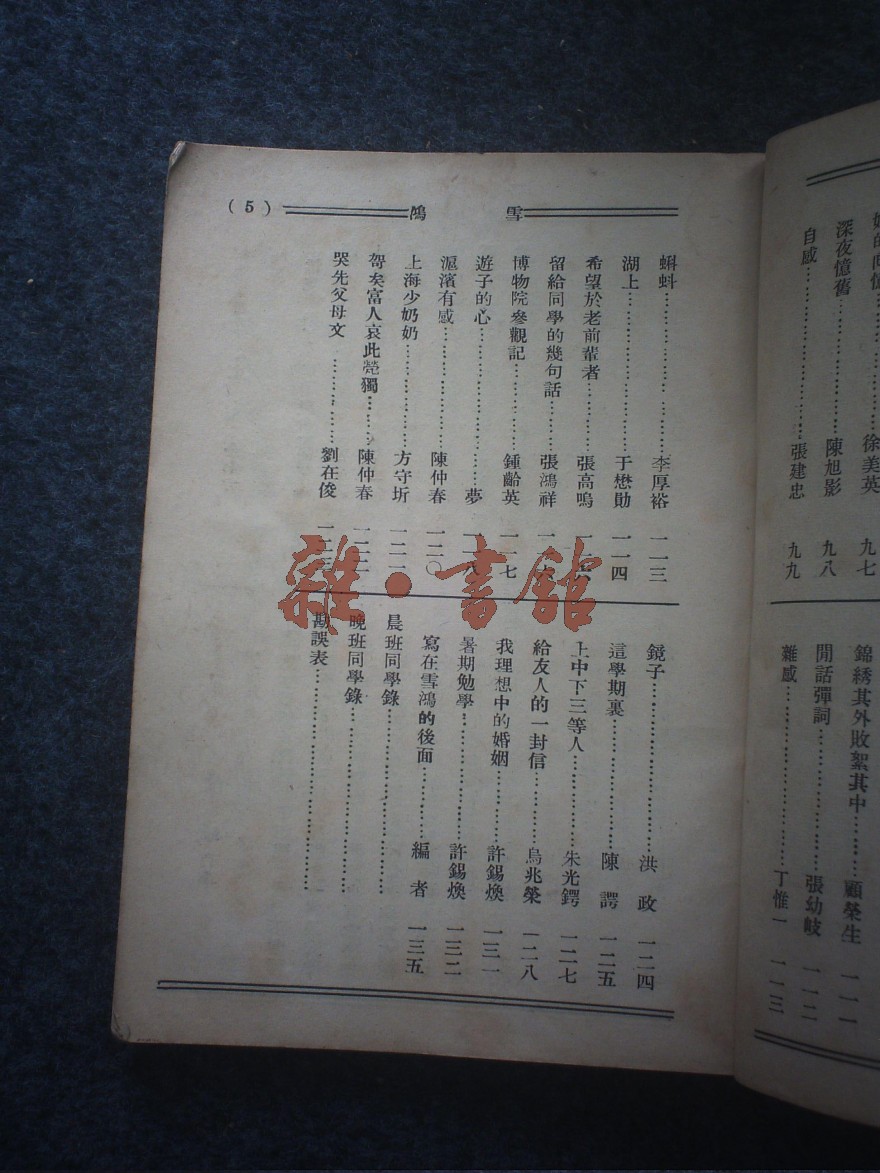 雪鴻
(5)
蝌蚪………………………李厚裕 一一三
湖上………………………于懋勛 一一四
希望於老前輩者…………張高鳴
留給同學的幾句話………張鴻祥
博物院參觀記……………鍾齡英 一一七
遊子的心…………………夢 一一八
滬濱有感…………………陳仲春 一二〇
上海少奶奶………………方守圻 一二一
哿矣富人哀此煢獨………陳仲春 一二二
哭先父母文………………劉在俊
鏡子………………………洪政 一二四
這學期裏…………………陳諤 一二五
上中下三等人……………朱光鍔 一二七
給友人的一封信…………烏兆榮 一二八
我理想中的婚姻…………許錫煥 一三一
暑期勉學…………………許錫煥 一三二
寫在雪鴻的後面…………編者 一三五
晨班同學錄………………
晚班同學錄………………
勘誤表……………………
徐美英 九七
深夜憶舊 陳旭影 九八
自感………………………張建忠 九九
錦綉其外敗絮其中………顧榮生 一一一
閒話彈詞…………………張幼岐 一一二
雜感………………………丁惟一 一一三
雜·書館